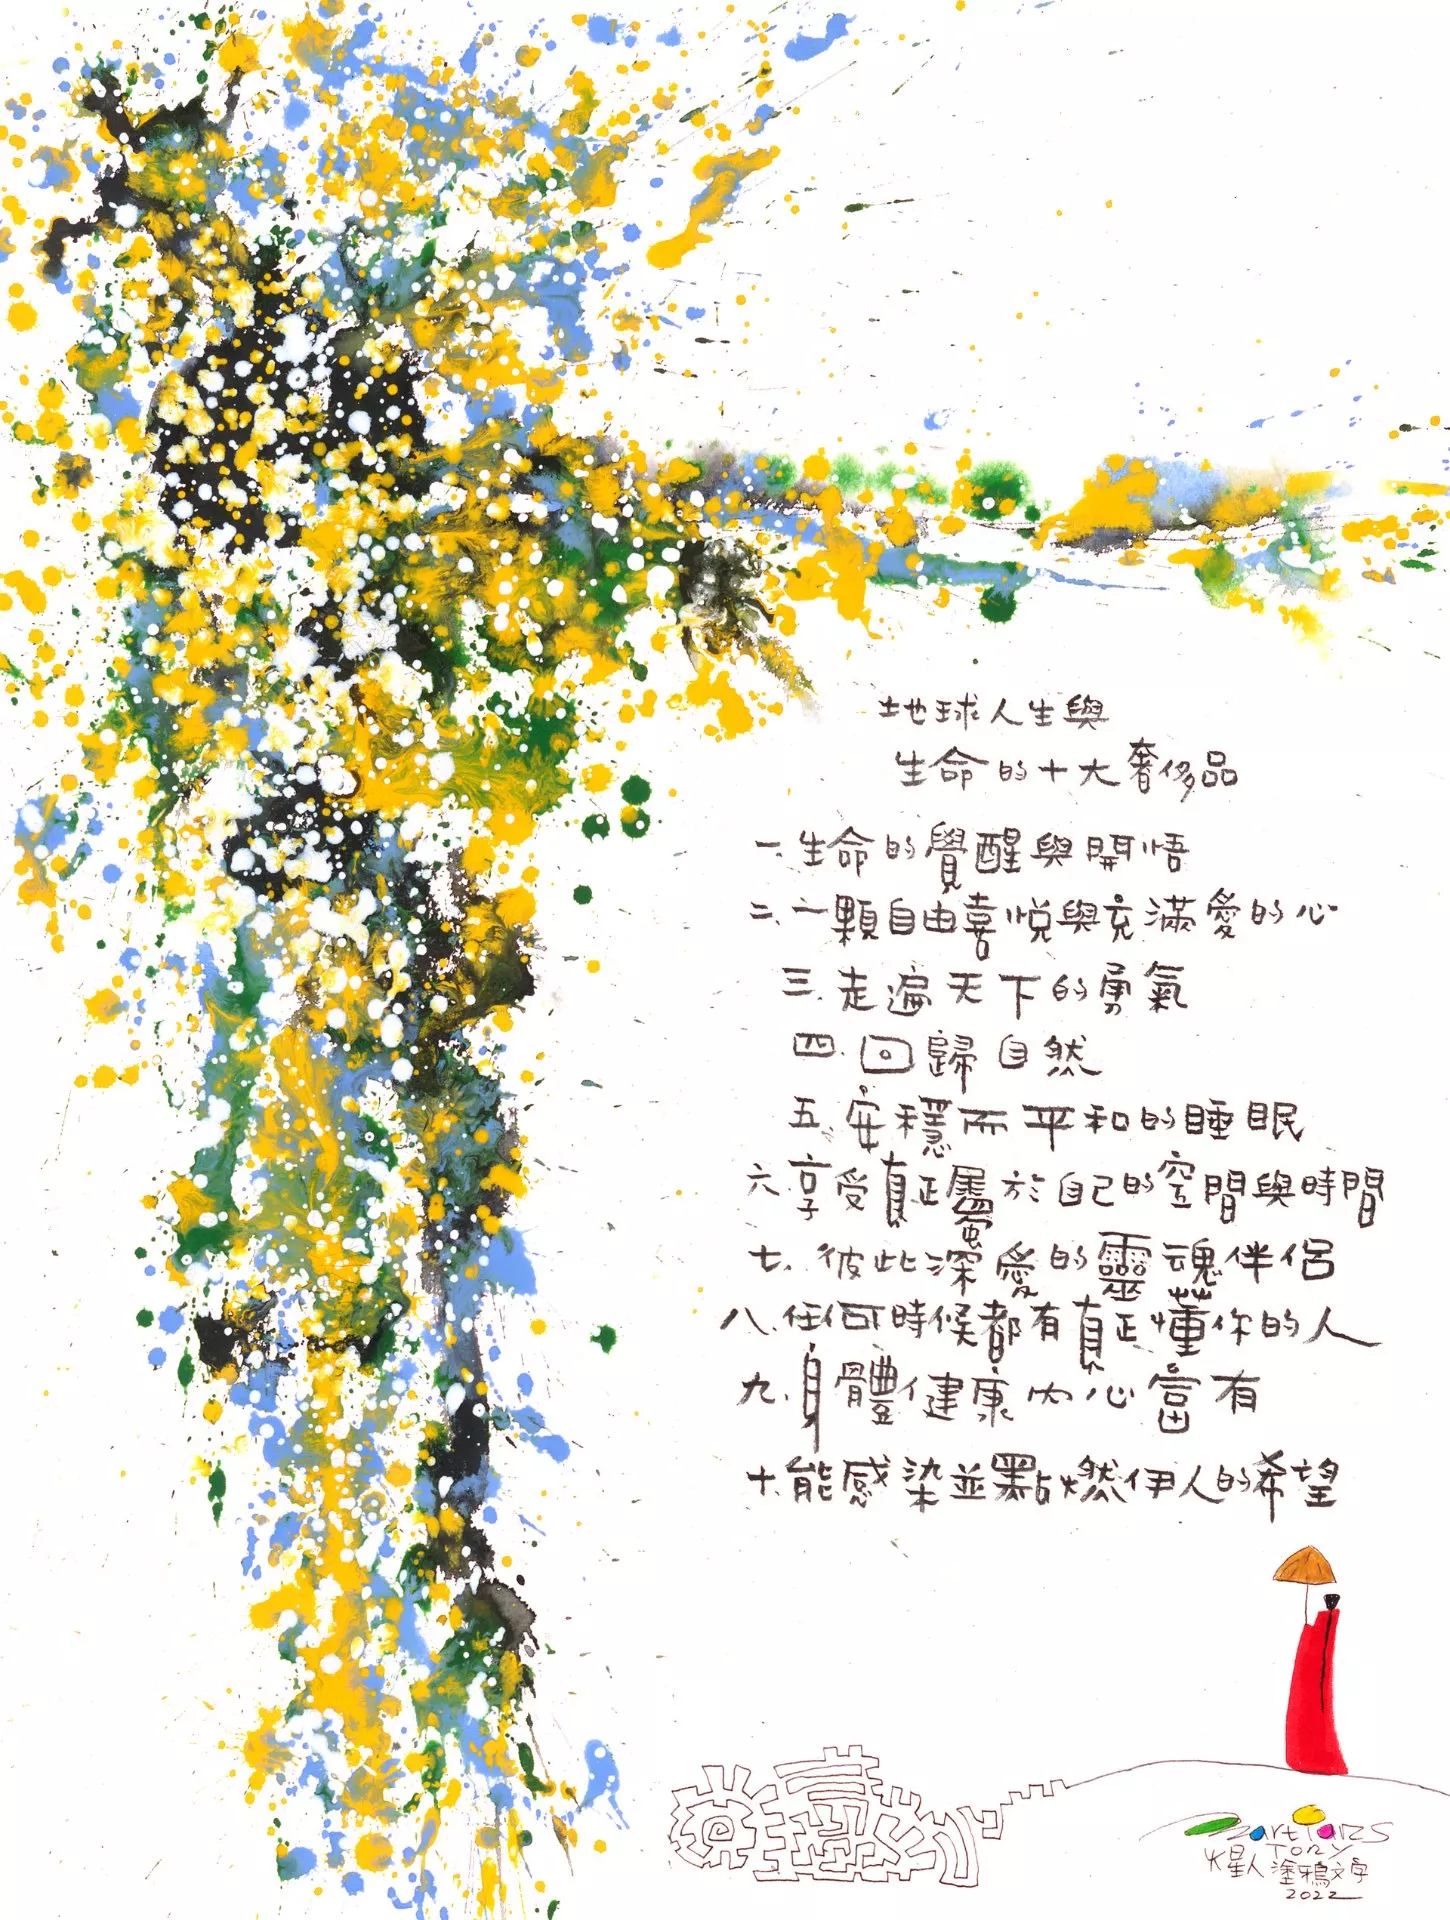 地球人生與
生命的十大奢侈品
一.生命的覺醒與開悟
二.一顆自由喜悅與充滿愛的心
三.走遍天下的勇氣
四.回歸自然
五.安穩而平和的睡眠
六.享受真正屬於自己的空間與時間
七.彼此深愛的靈魂伴侶
八.任何時候都有真正懂你的人
九.身體健康內心富有
十.能感染並點燃伊人的希望
martians
Tony
火星人塗鴉文字
2022